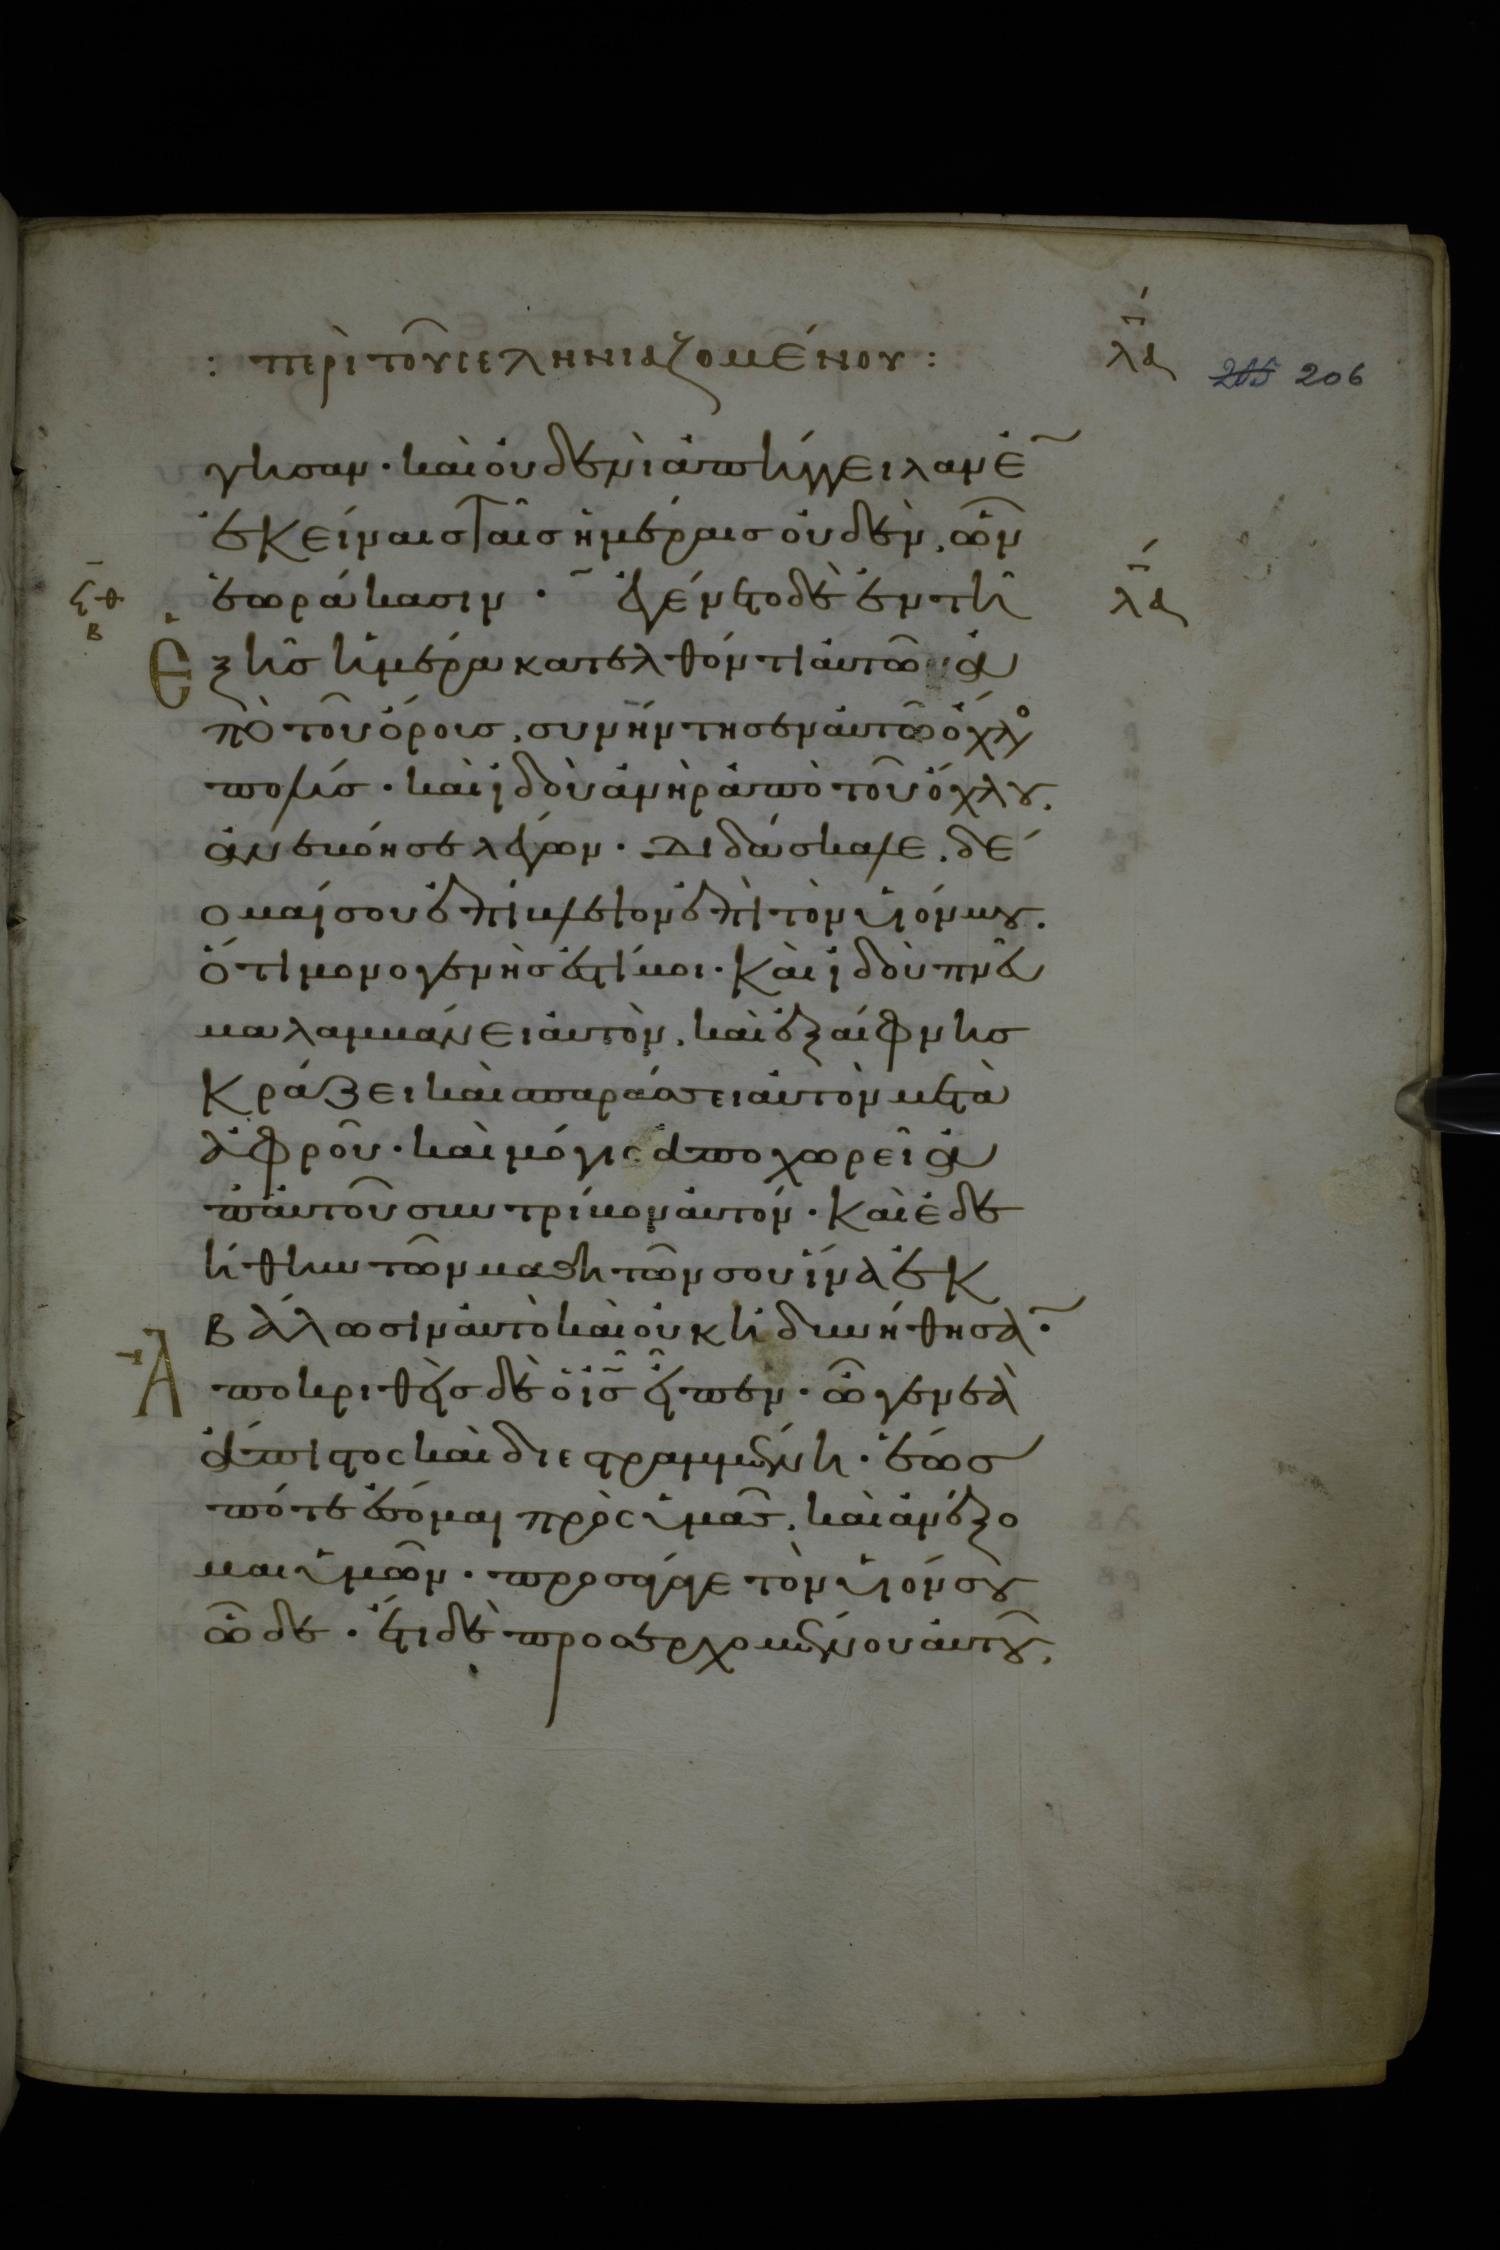 : περὶ τοῦ σεληνιαζομένου :
λα
205 206
γησαν · καὶ οὐδενὶ ἀπήγγειλαν ἐ̅
ἐκείναις ταῖς ἡμέραις οὐδὲν, ὧν
ἑωράκασιν · ἐγένετο δὲ ἐν τῆ
λα
ϟθ
β
Ἑξῆς ἡμέρα κατελθόντι αὐτῶ ἀ
πὸ τοῦ ὄρους, συνήντησεν αὐτῶ ὄχλο
πολύς · καὶ ἰδοὺ ἀνὴρ ἀπὸ τοῦ ὄχλου,
ἀνεβόησε λέγων · Διδάσκαλε, δέ
ομαί σου ἐπίβλεψον ἐπὶ τὸν υἱόν μου,
ὅτι μονογενὴς ἐστί μοι · Καὶ ἰδοὺ πνα
καὶ λαμβάνει αὐτὸν, καὶ ἐξαίφνης
κράζει καὶ σπαράσσει αὐτὸν μετὰ
ἀφροῦ · καὶ μόγις ἀποχωρεῖ ἀ
π' αὐτοῦ συντρίβον αὐτόν · Καὶ ἐδε
ήθην τῶν μαθητῶν σου ἵνα ἐκ
βάλωσιν αὐτὸ καὶ οὐκ ἠδυνήθησα̅ ·
Ἀποκριθεὶς δὲ ὁ ις̅ εἶπεν · ὦ γενεὰ
ἄπιστος καὶ διεστραμμένη · ἕως
πότε ἔσομαι πρὸς ὑμᾶς, καὶ ἀνέξο
μαι ὑμῶν · προσάγαγε τὸν υἱόν σου
ὧδε · ἔτι δὲ προσερχομένου αὐτοῦ,